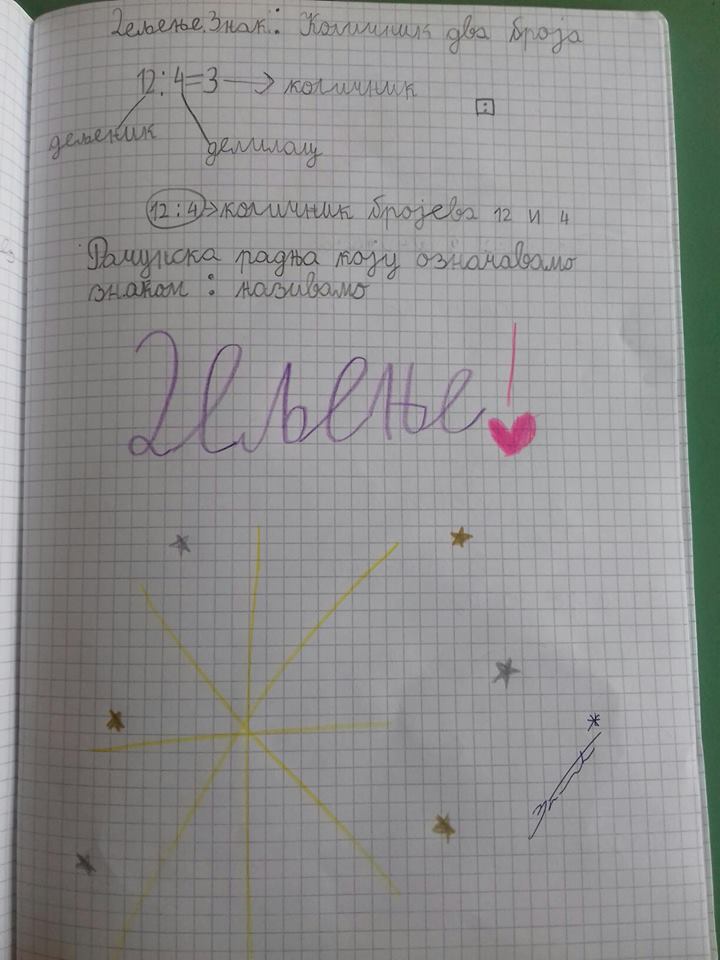 Дељење. Знак : Количник два броја
12:4=3 → количник
:
дељеник
делилац
12:4 → количник бројева 12 и 4
Рачунска радња коју означавамо
знаком : називамо
Дељење!